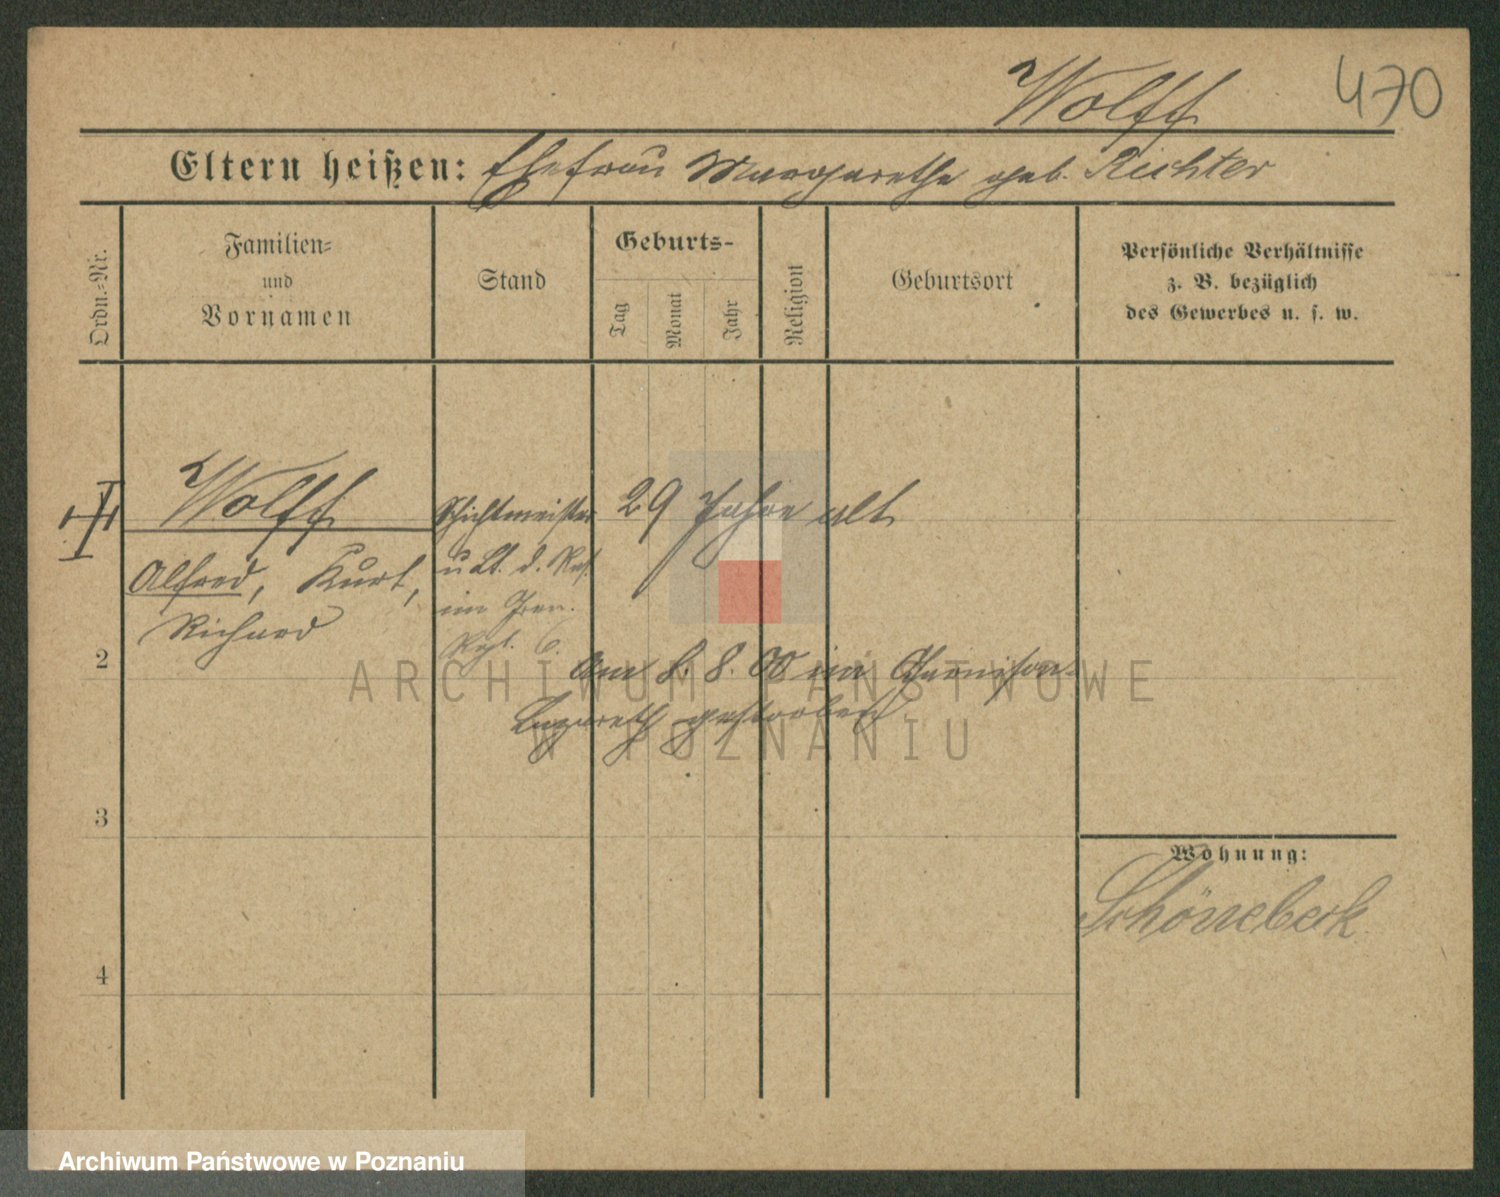 470
Wolff
Eltern heißen: Ehefrau Margarethe geb. Richter
Ordn.-Nr.
Familien-
und
Vornamen
Stand
Geburts-
Tag
Monat
Jahr
Religion
Geburtsort
Persönliche Verhältnisse
z. B. bezüglich
des Gewerbes u. s. w.
Wolff
Alfred, Kurt,
Richard
Schichtmeister
u. Lt. d. Res.
im Gren.
Rgt. 6.
29 Jahre alt
2
am 8. 8. 00 im Garnison-
Lazareth gestorben
3
4
Wohnung:
Schönebeck
ARCHIWUM PAŃSTWOWE
W POZNANIU
Archiwum Państwowe w Poznaniu